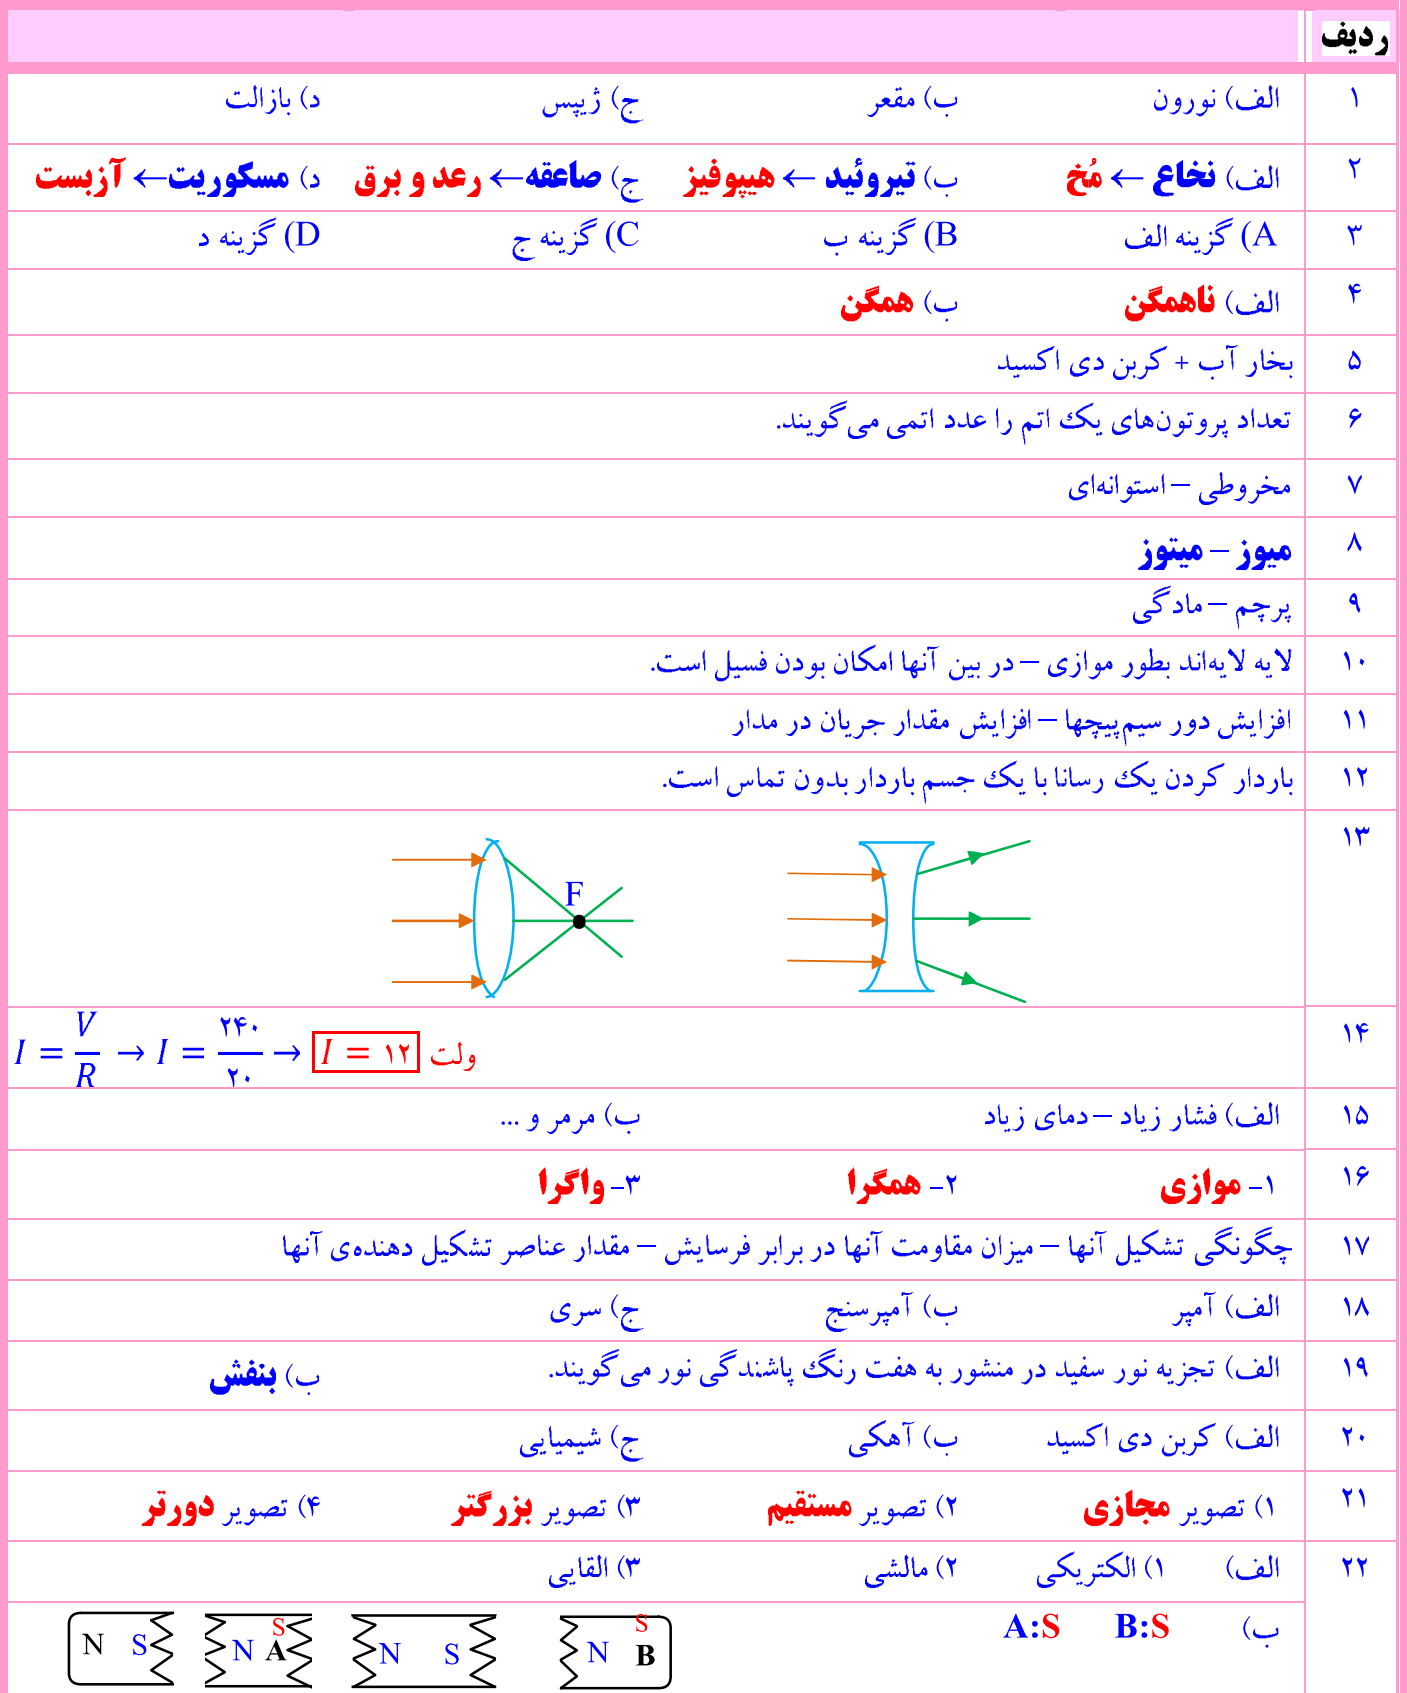 ردیف
۱ الف) نورون ب) مقعر ج) ژیپس د) بازالت
۲ الف) نخاع ← مُخ ب) تیروئید ← هیپوفیز ج) صاعقه← رعد و برق د) مسکوریت← آزبست
۳ A) گزینه الف B) گزینه ب C) گزینه ج D) گزینه د
۴ الف) ناهمگن ب) همگن
۵ بخار آب + کربن دی اکسید
۶ تعداد پروتون‌های یک اتم را عدد اتمی می‌گویند.
۷ مخروطی – استوانه‌ای
۸ میوز – میتوز
۹ پرچم – مادگی
۱۰ لایه لایه‌اند بطور موازی – در بین آنها امکان بودن فسیل است.
۱۱ افزایش دور سیم‌پیچها – افزایش مقدار جریان در مدار
۱۲ باردار کردن یک رسانا با یک جسم باردار بدون تماس است.
۱۳ F
۱۴ I = V/R → I = ۲۴۰/۲۰ → I = ۱۲ ولت
۱۵ الف) فشار زیاد – دمای زیاد ب) مرمر و ...
۱۶ ۱- موازی ۲- همگرا ۳- واگرا
۱۷ چگونگی تشکیل آنها – میزان مقاومت آنها در برابر فرسایش – مقدار عناصر تشکیل دهنده‌ی آنها
۱۸ الف) آمپر ب) آمپرسنج ج) سری
۱۹ الف) تجزیه نور سفید در منشور به هفت رنگ پاشندگی نور می‌گویند. ب) بنفش
۲۰ الف) کربن دی اکسید ب) آهکی ج) شیمیایی
۲۱ ۱) تصویر مجازی ۲) تصویر مستقیم ۳) تصویر بزرگتر ۴) تصویر دورتر
۲۲ الف) ۱) الکتریکی ۲) مالشی ۳) القایی
ب) A:S B:S
N S N S A N S N S B